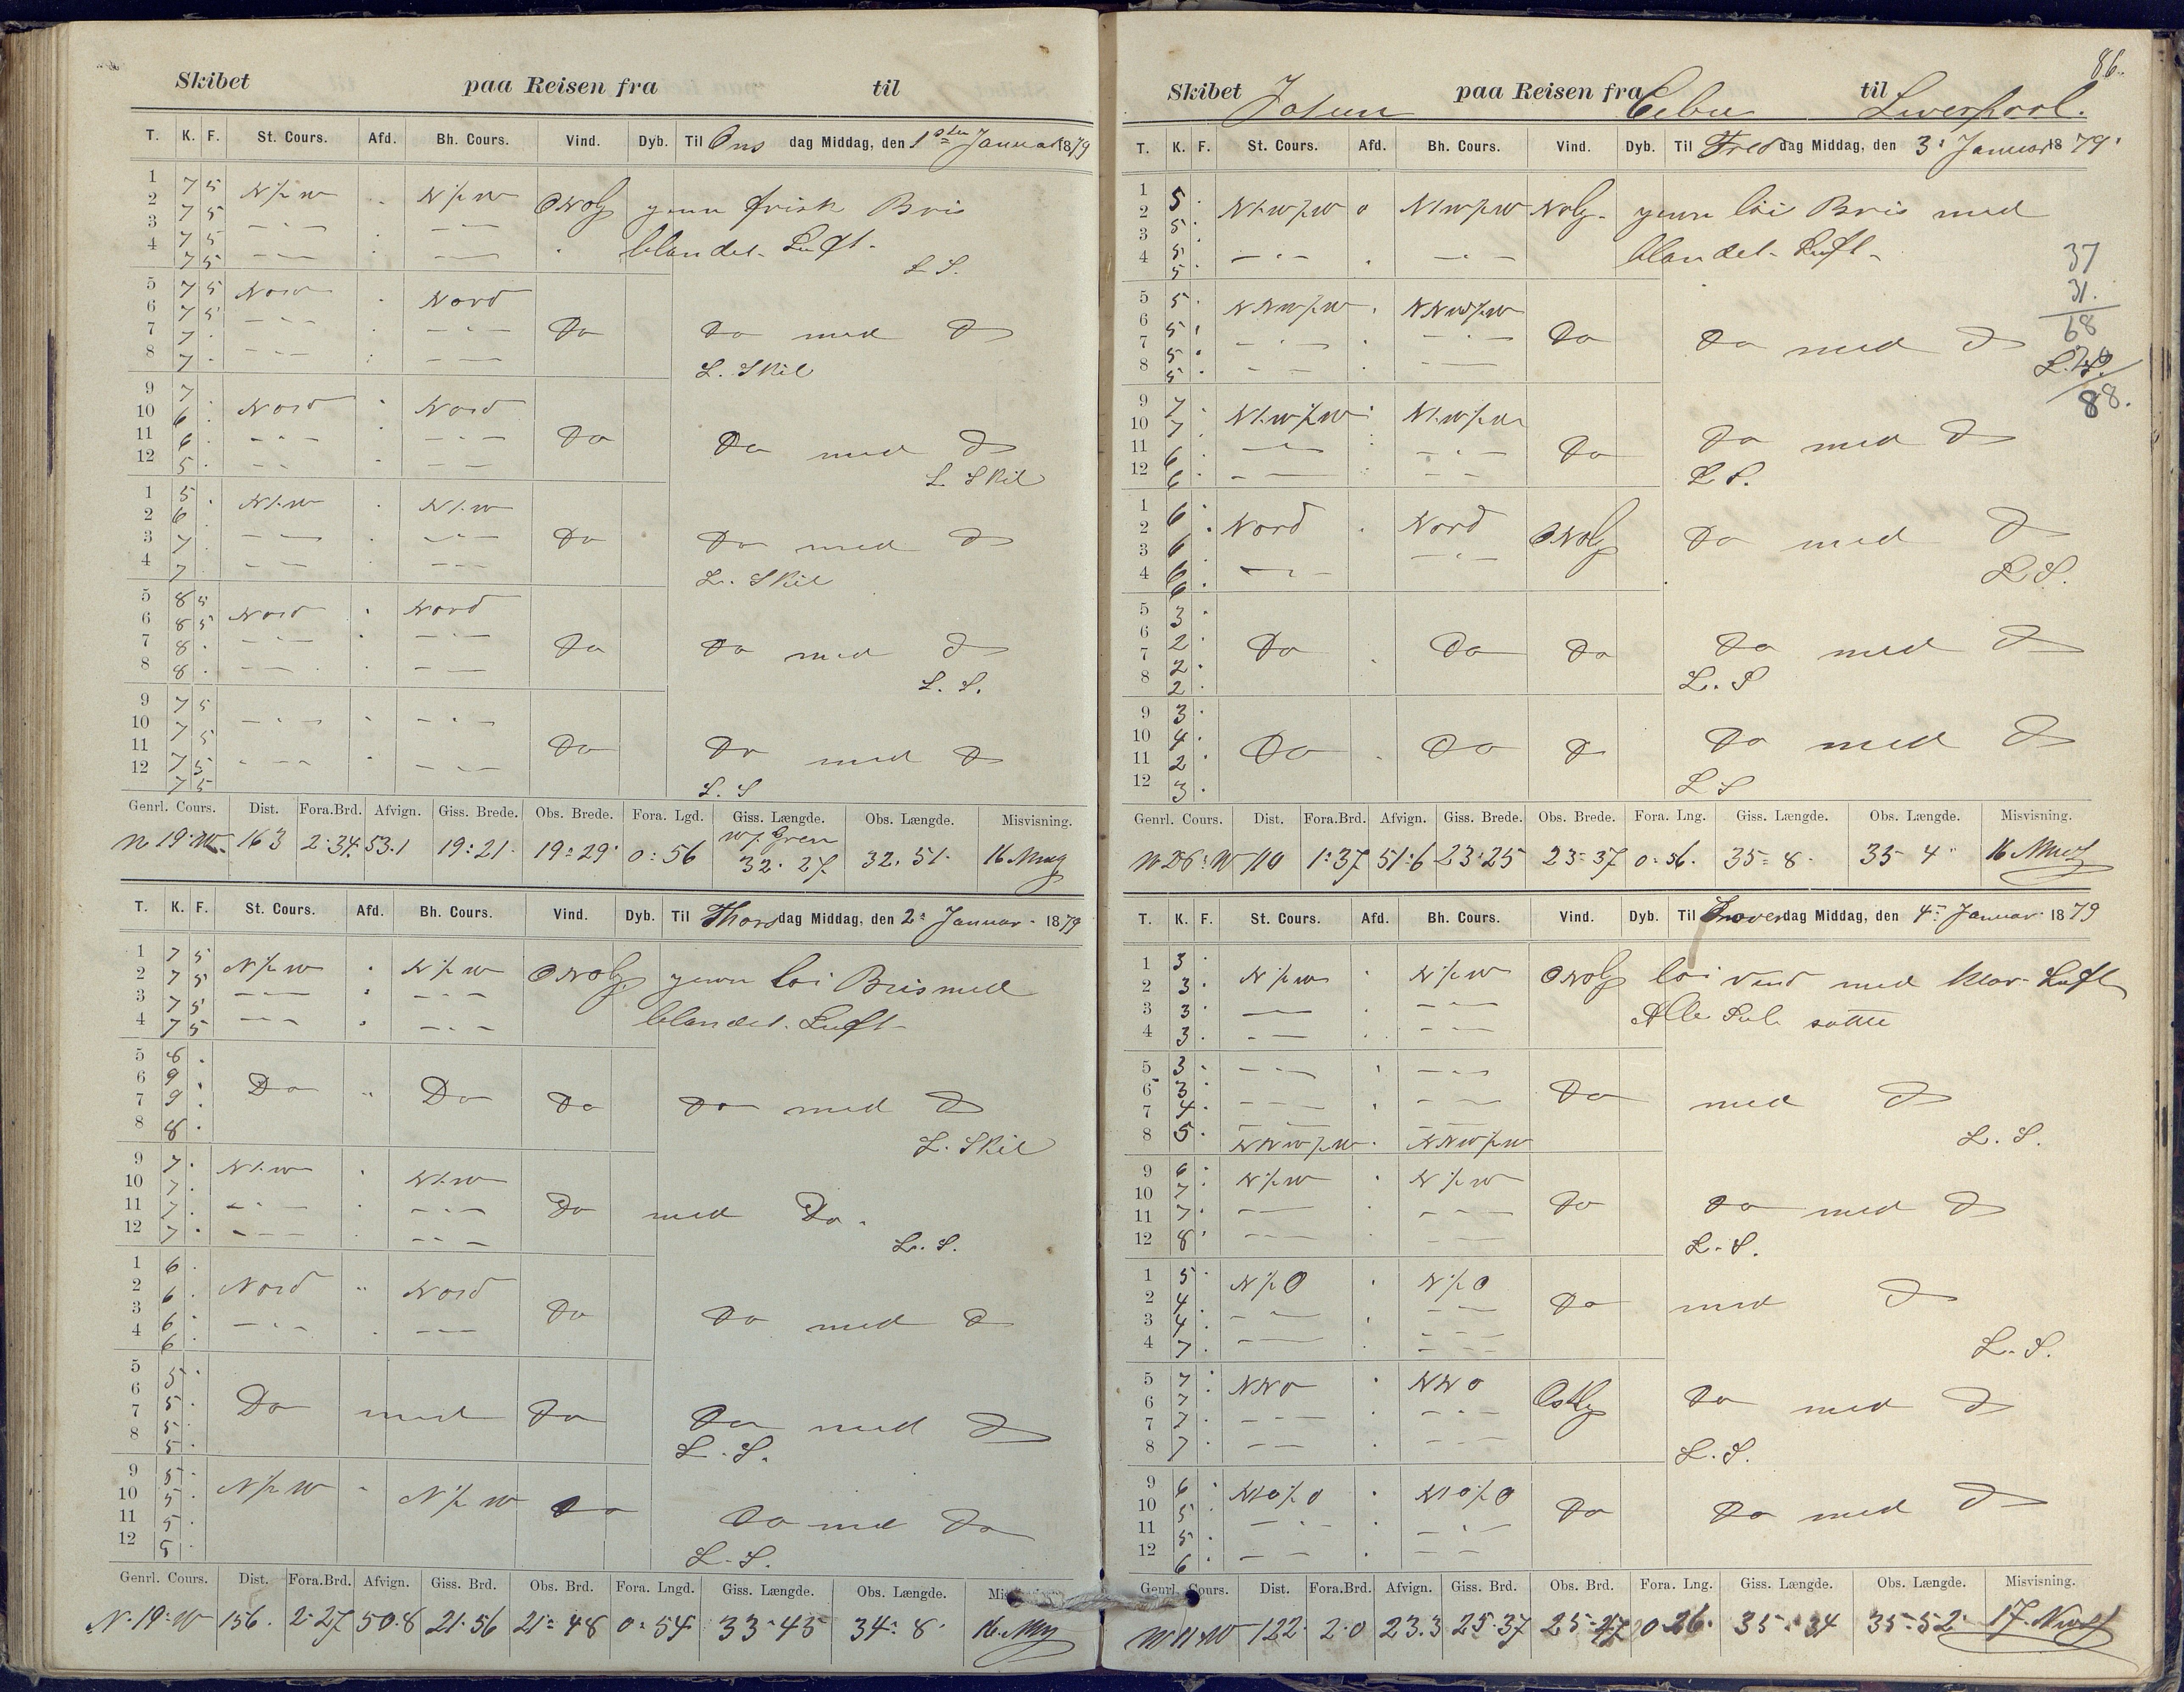 Skibet paa Reisen fra til
T. K. F. St. Cours. Afd. Bh. Cours. Vind. Dyb. Til Ons dag Middag, den 1ste Januar 1879
1 7 5 N/p W N/p W ONOlg jevn frisk Bris
2 7 5
3 7 5 blandet Luft.
4 7 5 L S.
5 7 5 Nord Nord
6 7 5
7 7 Do Do med D
8 7 L. Skil
9 7
10 6 Nord Nord
11 6 Do Do med D
12 5 L Skil
1 5 N/p W N/p W
2 6
3 7 Do Do med D
4 7 L. Skil
5 8 5 Nord Nord
6 8 5
7 8 Do Do med D
8 8 L. S.
9 7 5
10 7 5
11 7 5 Do Do med D
12 7 5 L. S
Genrl. Cours. Dist. Fora.Brd. Afvign. Giss. Brede. Obs. Brede. Fora. Lgd. Giss. Længde. Obs. Længde. Misvisning.
N 19° W 163 2·34 53.1 19°21 19°29 0°56 W/ Gren 32·27 32·51
T. K. F. St. Cours. Afd. Bh. Cours. Vind. Dyb. Til Thors dag Middag, den 2n Januar 1879
1 7 5 N/p W N/p W ONOlg jevn löi Bris med
2 7 5
3 7 5 blandet Luft
4 7 5
5 8
6 9 Do Do
7 9 Do Do med D
8 8 L. Skil
9 7 N/p W N/p W
10 7
11 7 Do med Do
12 7 L. S.
1 6
2 6 Nord Nord
3 6 Do Do med D
4 6
5 5
6 5 Do med Do Do med D
7 5
8 5 L. S.
9 5 N/p W N/p W Do
10 5
11 5 Do med Do
12 5 L. S.
Genrl. Cours. Dist. Fora.Brd. Afvign. Giss. Brd. Obs. Brd. Fora. Lngd. Giss. Længde. Obs. Længde.
N 19° W 156 2·27 50·8 21·56 21°48 0°54 33·45 34·8
86.
Skibet Jotun paa Reisen fra Cebu til Liverpool.
T. K. F. St. Cours. Afd. Bh. Cours. Vind. Dyb. Til Fre dag Middag, den 3 Januar 1879
1 5
2 5 jevn löi Bris med
3 5
4 5 blandet Luft
37
31
68
88.
5 5 NNW/p W NNW/p W
6 5
7 5 Do Do med D
8 5
9 7
10 7
11 6 Do Do med D
12 6 L S.
1 6
2 6 Nord Nord ONOlg Do med D
3 6
4 6 L S.
5 3
6 2 Do Do Do Do med D
7 2
8 2 L. S
9 3
10 4 Do Do D Do med D
11 2
12 3 L S
Genrl. Cours. Dist. Fora.Brd. Afvign. Giss. Brede. Obs. Brede. Fora. Lng. Giss. Længde. Obs. Længde. Misvisning.
110 1°37 51·6 23·25 23·37 0·56 35°8 35 4
T. K. F. St. Cours. Afd. Bh. Cours. Vind. Dyb. Til Löver dag Middag, den 4n Januar 1879
1 3
2 3 N/p W N/p W ONOlg löi Vind med klar Luft
3 3 Alle Seil satte
4 3
5 3
6 3 Do med D
7 4
8 5 NNW/p W NNW/p W L. S.
9 6 N/p W N/p W
10 7
11 7 Do Do med D
12 8 L. S.
1 5 N/p O N/p O
2 4 Do med D
3 4
4 7 L. S.
5 7 NNO NNO Ostlg Do med D
6 7
7 7
8 7 L. S.
9 6 NNO/p O NNO/p O
10 5 Do Do med D
11 5
12 6
Genrl. Cours. Dist. Fora.Brd. Afvign. Giss. Brd. Obs. Brd. Fora. Lng. Giss. Længde. Obs. Længde. Misvisning.
N 11 W 122 2·0 23·3 25·37 25·47 0·26 35·34 35·52